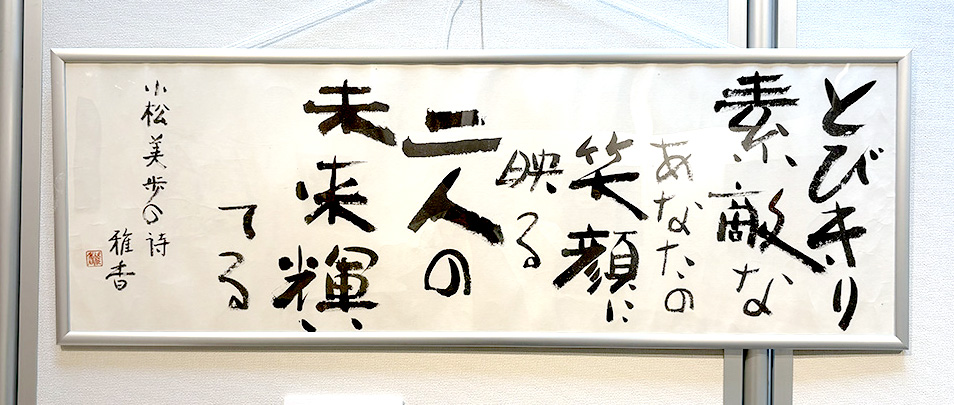 とびきり
素敵な
あなたの
笑顔に
映る
二人の
未来輝い
てる
小松美歩の詩
雅香